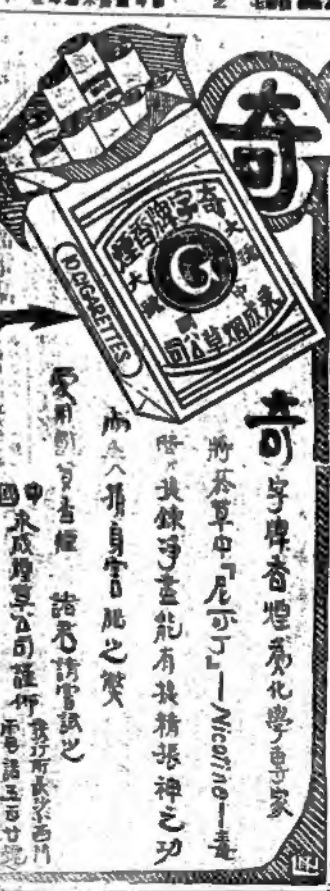 奇
奇字牌香煙
大
大
中
國
永成烟草公司
10 CIGARETTES
奇字牌香煙為化學專家
將菸草中「尼可丁」—Nicotine—毒
質提鍊淨盡能有提精振神之功
而無損身害腦之弊
愛用國貨香煙 諸君請嘗試之
中國永成煙草公司謹佈
發行所
西門
電話五百廿